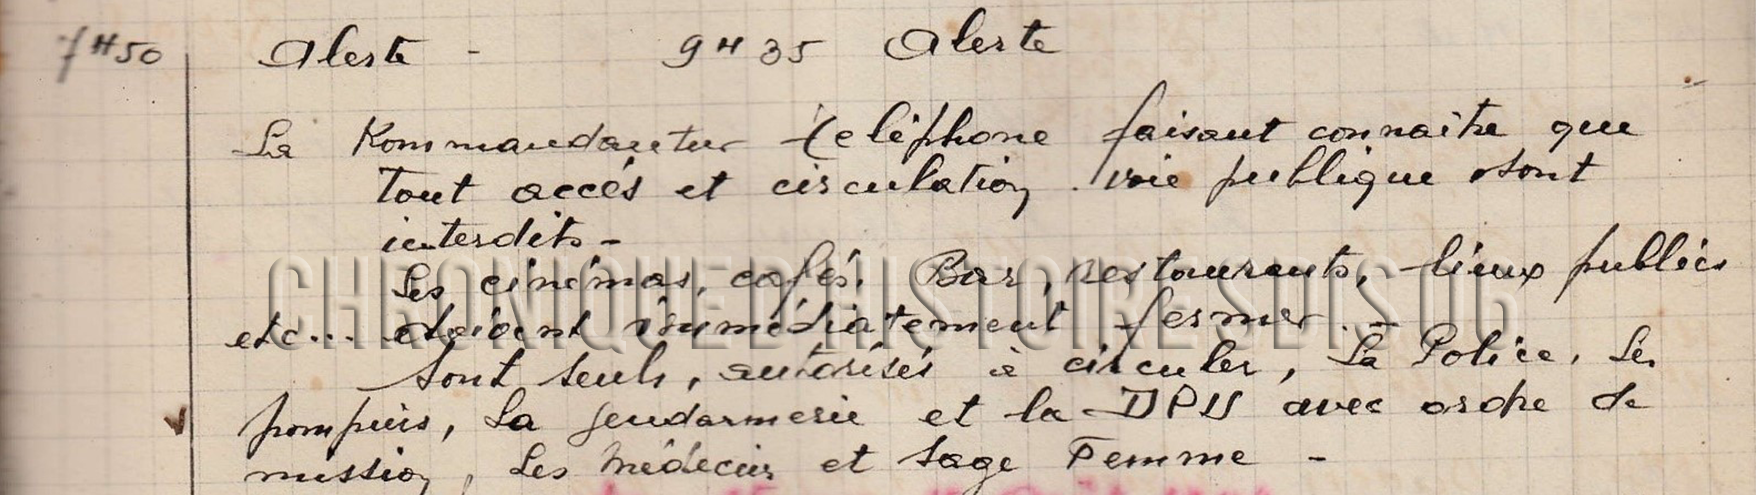 7H50 Alerte - 9H35 Alerte
La Kommandantur téléphone faisant connaître que
tout accès et circulation voie publique sont
interdits -
Les cinémas, cafés, Bar, restaurants, lieux publics
etc... doivent immédiatement fermer -
Sont seuls, autorisés à circuler, La Police, Les
pompiers, La gendarmerie et la DPU avec ordre de
mission, Les Médecins et Sage Femme -
CHRONIQUED'HISTOIRESDIS06